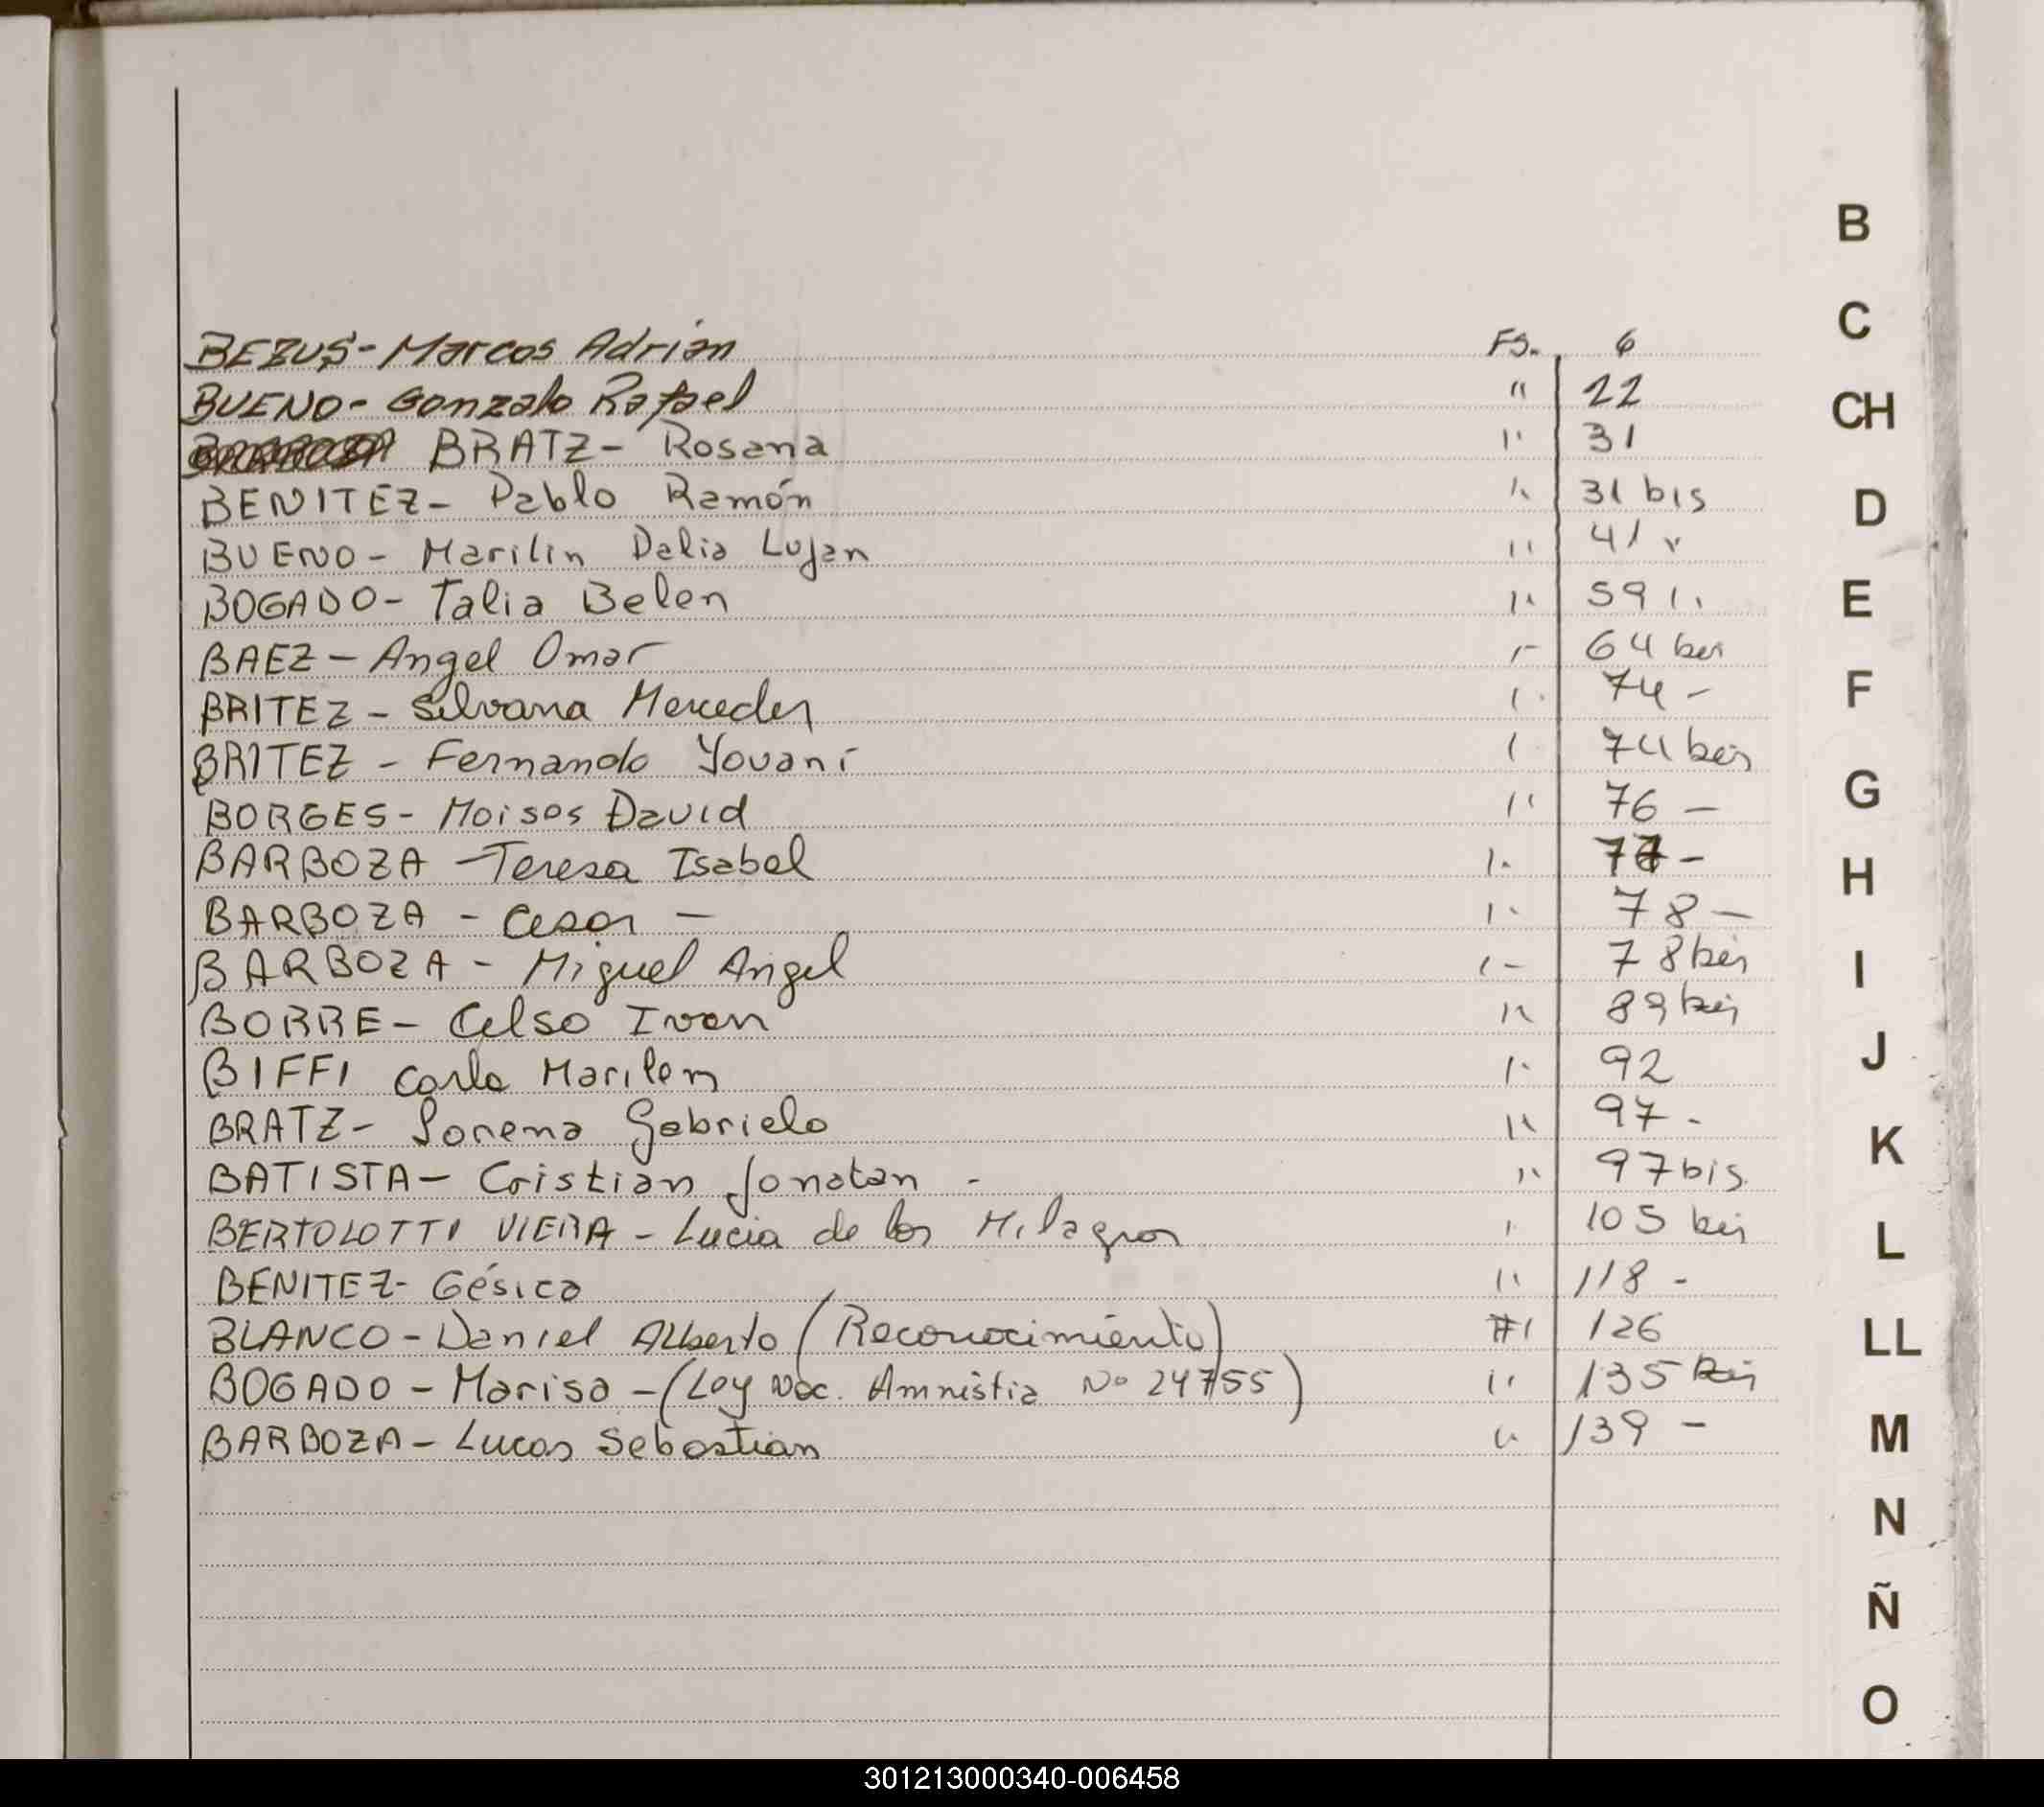 BEZUS - Marcos Adrián Fs. 6
BUENO - Gonzalo Rafael " 22
BRATZ - Rosana " 31
BENITEZ - Pablo Ramón " 31 bis
BUENO - Marilin Dalia Lujan " 41 v
BOGADO - Talia Belen " 59 "
BAEZ - Angel Omar " 64 bis
BRITEZ - Silvana Mercedes " 74 -
BRITEZ - Fernando Yovani " 74 bis
BORGES - Moises David " 76 -
BARBOZA - Teresa Isabel " 77 -
BARBOZA - Cesar - " 78 -
BARBOZA - Miguel Angel " 78 bis
BORRE - Celso Ivan " 89 bis
BIFFI Carla Marilen " 92
BRATZ - Lorena Gabriela " 97 -
BATISTA - Cristian Jonatan - " 97 bis
BERTOLOTTI VIERA - Lucia de los Milagros " 105 bis
BENITEZ - Gésica " 118 -
BLANCO - Daniel Alberto (Reconocimiento) " 126
BOGADO - Marisa - (Ley Nac. Amnistia Nº 24755) " 135 bis
BARBOZA - Lucas Sebastian " 139 -
B
C
CH
D
E
F
G
H
I
J
K
L
LL
M
N
Ñ
O
301213000340-006458